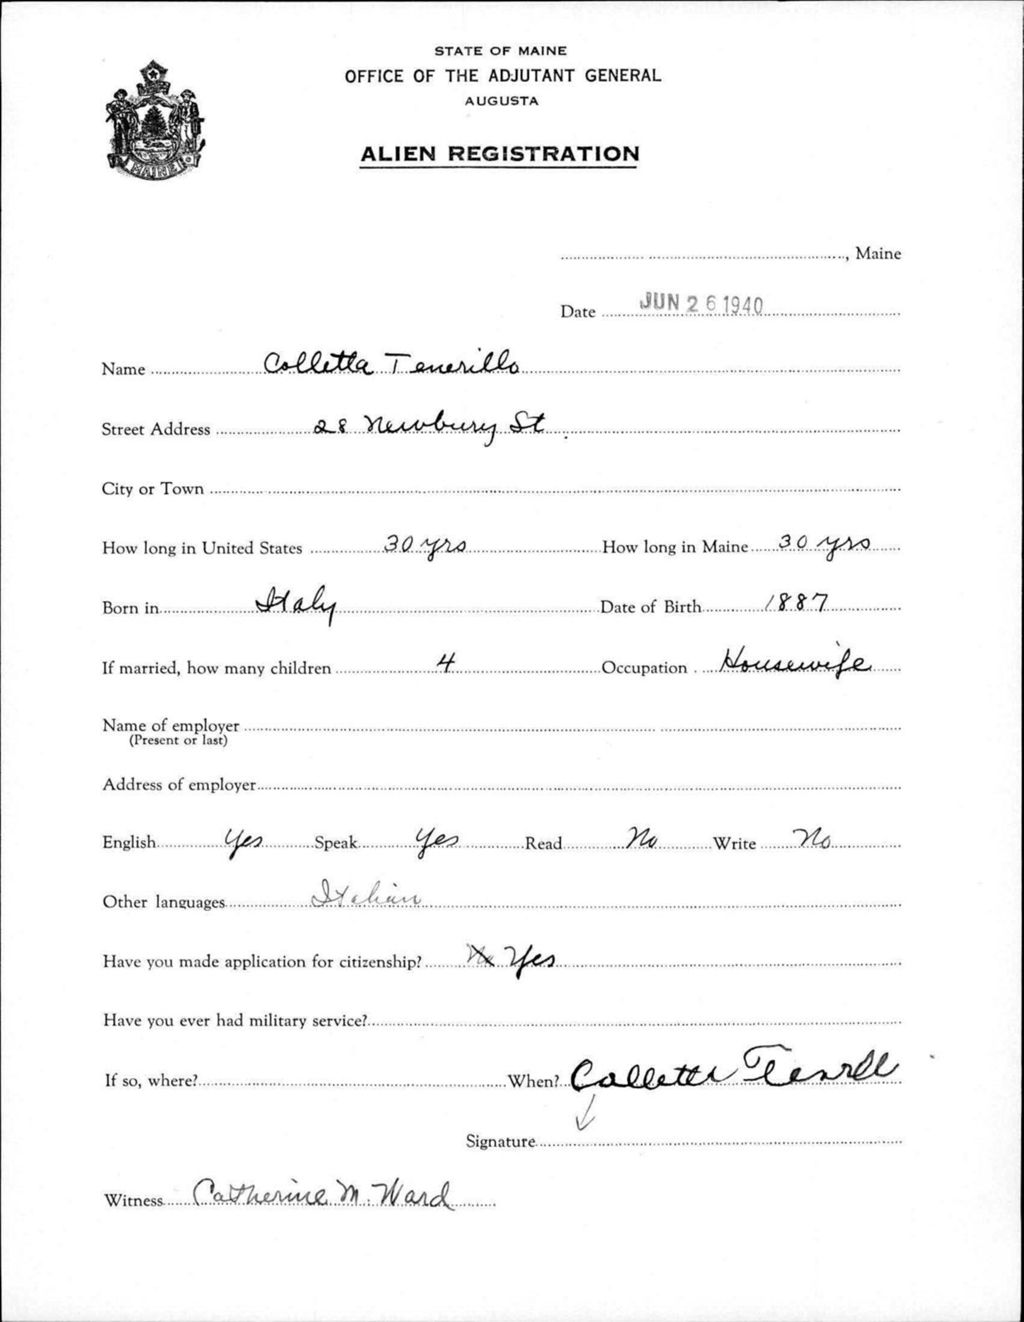 STATE OF MAINE
OFFICE OF THE ADJUTANT GENERAL
AUGUSTA
ALIEN REGISTRATION
MAINE
, Maine
Date JUN 26 1940
Name Colletta Tenerillo
Street Address 28 Newbury St.
City or Town
How long in United States 30 yrs How long in Maine 30 yrs
Born in Italy Date of Birth 1887
If married, how many children 4 Occupation Housewife
Name of employer
(Present or last)
Address of employer
English Yes Speak Yes Read No Write No
Other languages Italian
Have you made application for citizenship? No Yes
Have you ever had military service?
If so, where? When? Colletta
Signature
Witness Catherine M. Ward